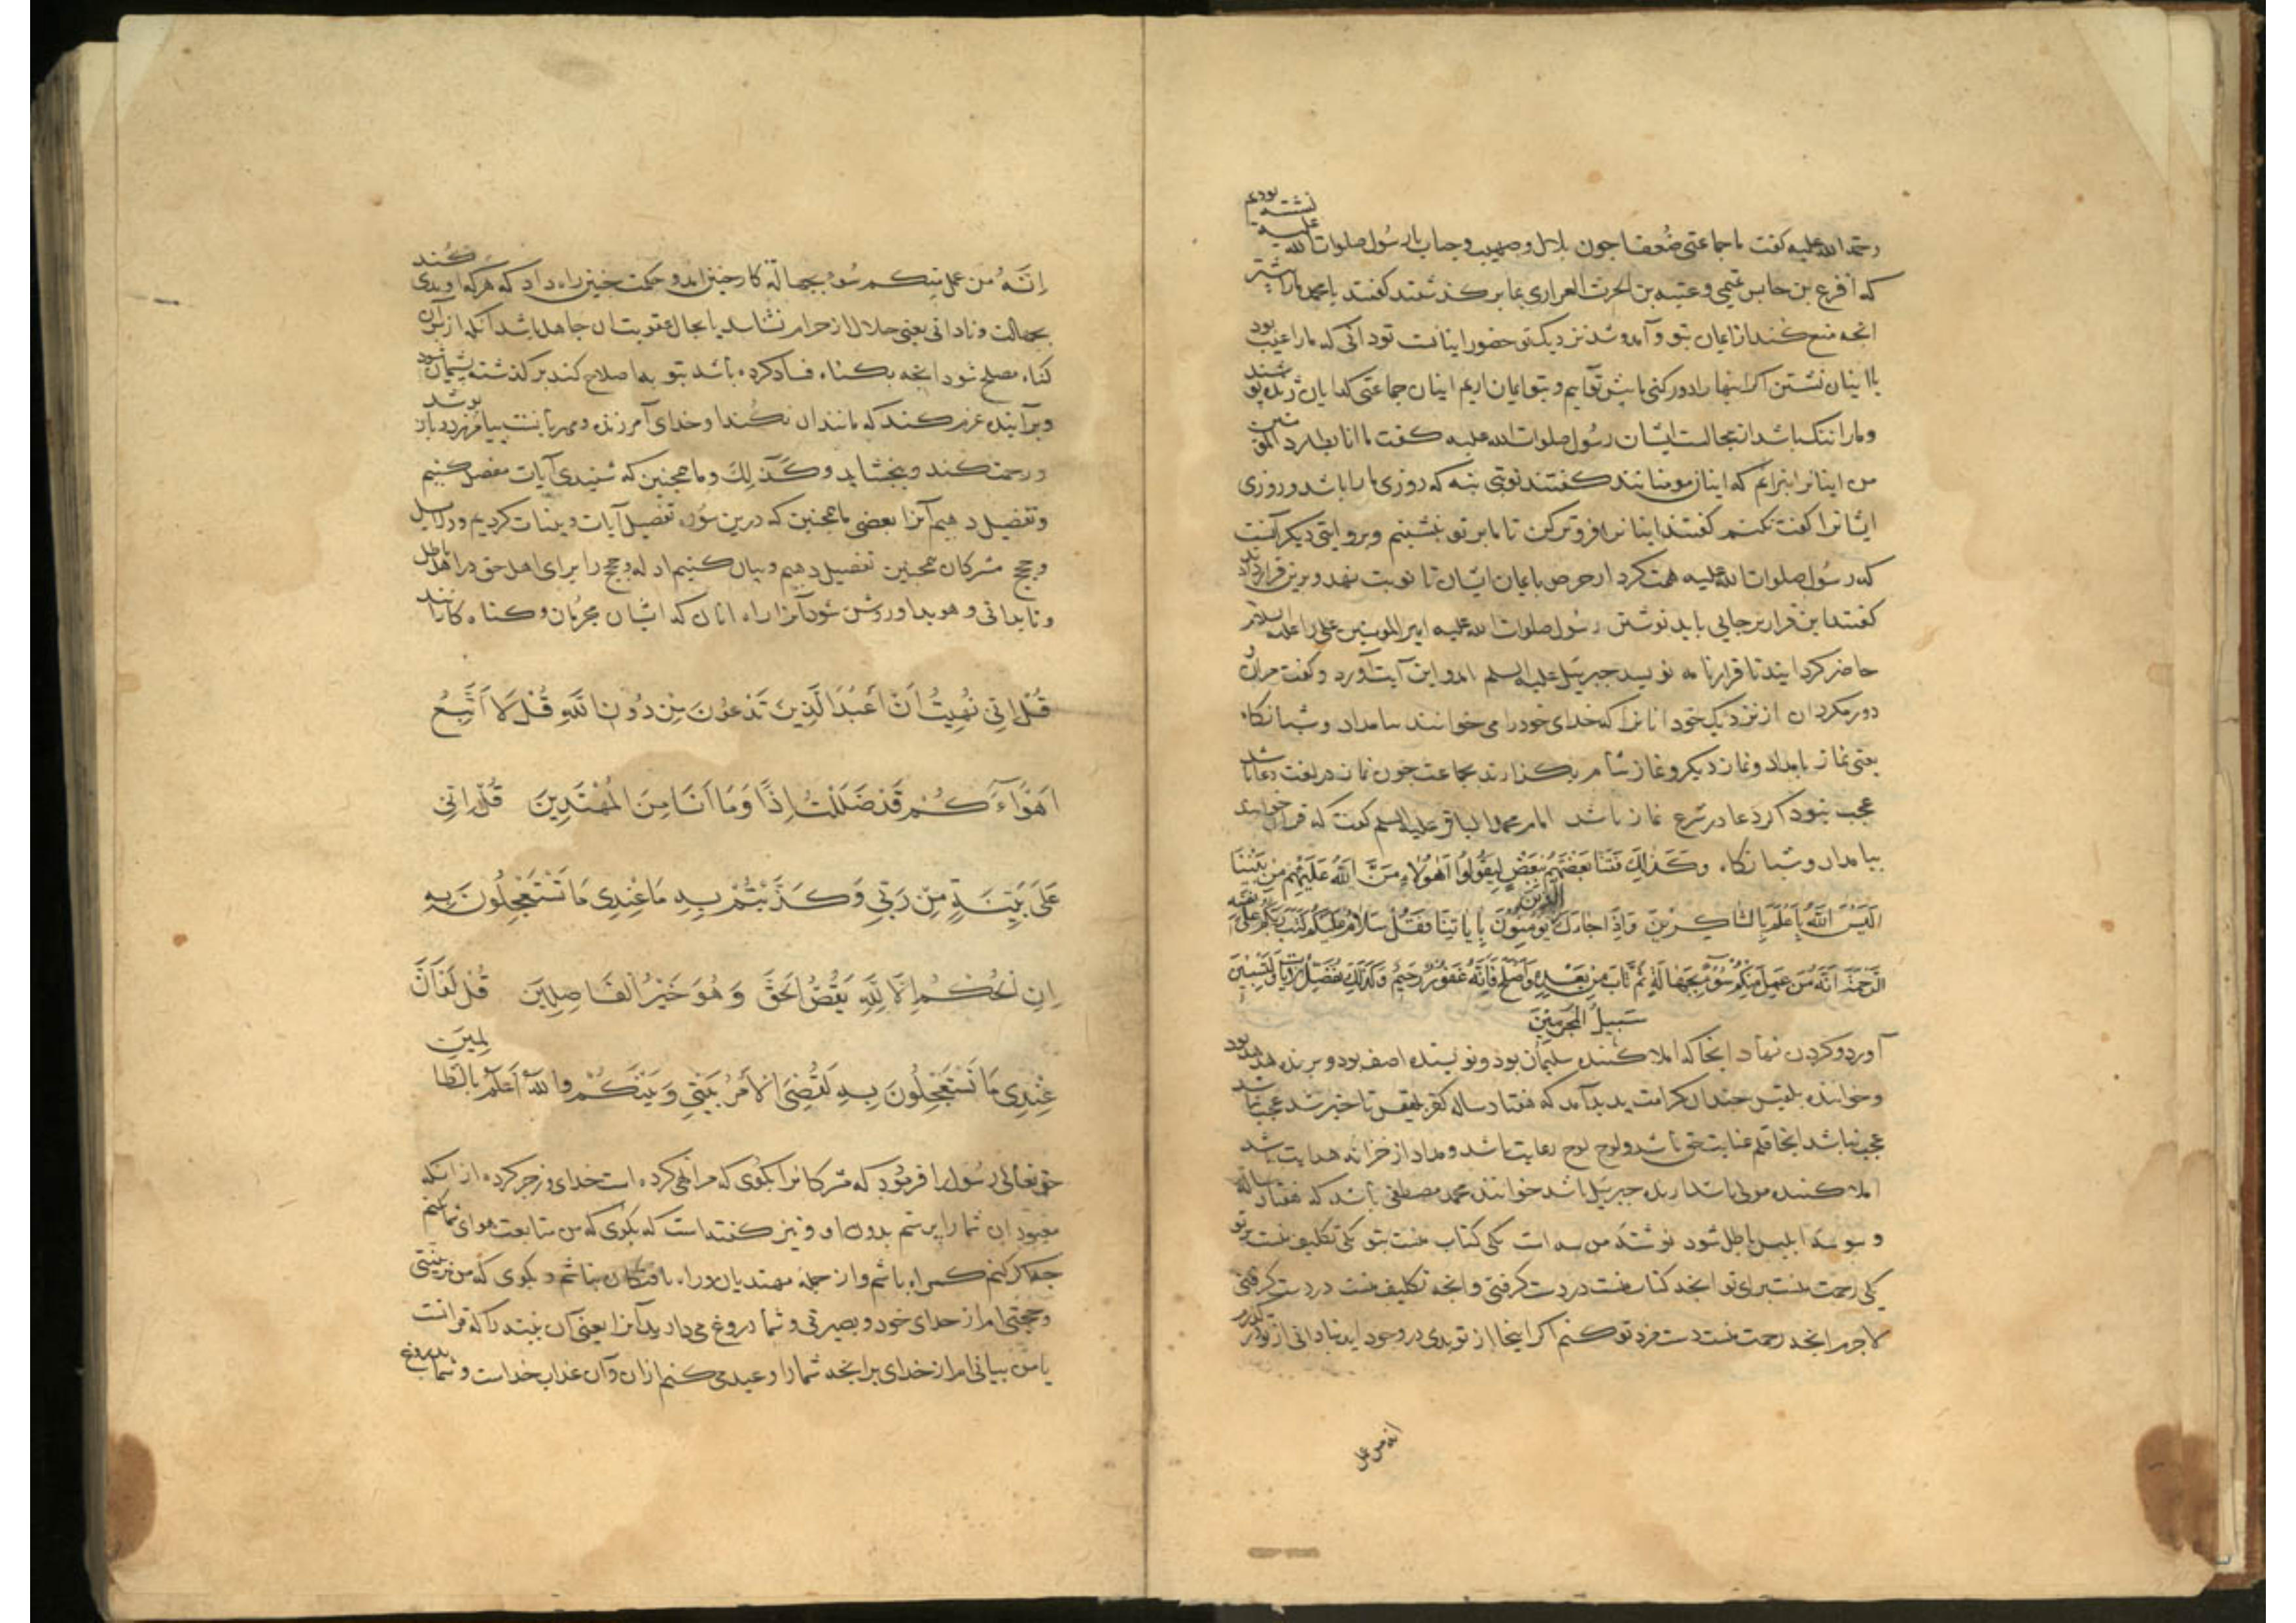 رحمة الله عليه کفت با جماعتی ضعفا جون بلال و صهیب و خباب با رسول صلوات الله علیه نشسته بودیم
که اقرع بن حابس تمیمی و عتبه بن الحرث الفراری بما بر کذشتند کفتند یا محمد ما را بیشتر
انجه منع کند از ایمان بتو و آمد و شد نزدیک تو حضور اینانست تو دانی که ما را عیب بود
با اینان نشستن اکر اینها را دور کنی ما بیش تو آییم و بتو ایمان اریم اینان جماعتی کدایان ژنده بو شند
و ما را ننک باشد از مجالست ایشان رسول صلوات الله علیه کفت ما انا بطارد المؤمنین
من اینانرا نرانم که اینان مومنانند کفتند نوبتی بنه که روزی ما را باشد و روزی
ایشانرا کفت نکنم کفتند اینانرا فروتر کن تا ما بر تو نشینیم و بروایتی دیکر آنست
که رسول صلوات الله علیه همت کرد از حرص بایمان ایشان تا نوبت نهد و برین قرار دادند
کفتند این قرار بر جایی باید نوشتن رسول صلوات الله علیه امیر المومنین علی را علیه السلام
حاضر کردانیدند تا قرارنامه نویسد جبریئل علیه السلم امد و این آیت آورد و کفت مران و
دور مکردان از نزدیک خود انانرا که خدای خود را می خوانند بامداد و شبانکاه
یعنی نماز بامداد و نماز دیکر و نماز شام بکذارند بجماعت جون نماز در لغت دعا باشد
عجب نبود اکر دعا در شرع نماز باشد امام محمد الباقر علیه السلم کفت که قرآن خوانند
ببامداد و شبانکاه وَكَذَلِكَ فَتَنَّا بَعْضَهُمْ بِبَعْضٍ لِيَقُولُوا أَهَؤُلَاءِ مَنَّ اللَّهُ عَلَيْهِمْ مِنْ بَيْنِنَا
أَلَيْسَ اللَّهُ بِأَعْلَمَ بِالشَّاكِرِينَ وَإِذَا جَاءَكَ الَّذِينَ يُؤْمِنُونَ بِآيَاتِنَا فَقُلْ سَلَامٌ عَلَيْكُمْ كَتَبَ رَبُّكُمْ عَلَى نَفْسِهِ
الرَّحْمَةَ أَنَّهُ مَنْ عَمِلَ مِنْكُمْ سُوءًا بِجَهَالَةٍ ثُمَّ تَابَ مِنْ بَعْدِهِ وَأَصْلَحَ فَأَنَّهُ غَفُورٌ رَحِيمٌ وَكَذَلِكَ نُفَصِّلُ الْآيَاتِ وَلِتَسْتَبِينَ
سَبِيلُ الْمُجْرِمِينَ
آورد و کردن نهاد انجا که املا کننده سلیمان بود و نویسنده اصف بود و برنده هدهد بود
و خواننده بلقیس جندان کرامت بدید آمد که هفتاد ساله کفر بلقیس
عجب نباشد انجا قلم عنایت حق باشد و لوح لوح رعایت باشد و مداد از خزانه هدایت باشد
املا کننده مولی باشد ارنده جبریئل باشد خواننده محمد مصطفی باشد که هفتاد ساله
وسوسه ابلیس باطل شود نوشته من سه است یکی کتاب منست بتو یکی تکلیف منست برتو
یکی رحمت منست برای تو انجه کتاب منست در دست کرفتی و انجه تکلیف منست در دست کرفتی
لاجرم انجه رحمت منست فرد تو کنم اکر اینجا از تو بدی در وجود اید بنادانی از تو در کذرم
انه من عمل
اِنَّهُ مَن عَمِلَ مِنكُم سُوءً بِجهالَة کار جنین امد و حکمت جنین راه داد که هر که او بدی کند
بجهالت و نادانی یعنی حلال از حرام نشناسد یا بحال عقوبت ان جاهل باشد آنکه از بس آن
کناه مصلح شود انجه بکناه فساد کرده باشد بتوبه اصلاح کند بر کذشته بشیمان شود
و بر آینده عزم کند که مانند ان نکند او خدای آمرزنده و مهربانست بیامرزد و باز بوشد
و رحمت کند و ببخشاید وَكَذَلِكَ و ما همجنین که شنیدی آیات مفصل کنیم
و تفضیل دهیم آنرا بعضی ما همجنین که درین سوره تفصیل آیات و بینات کردیم و دلایل
و حجج مشرکان همجنین تفصیل دهیم و بیان کنیم ادله و حجج را برای اهل حق در اهل باطل
و تا بدانی و هویدا و روشن شود آنرا راه انان که ایشان مجرمان و کناه کارانند
قُلْ إِنِّي نُهِيتُ أَنْ أَعْبُدَ الَّذِينَ تَدْعُونَ مِنْ دُونِ اللَّهِ قُلْ لَا أَتَّبِعُ
أَهْوَاءَكُمْ قَدْ ضَلَلْتُ إِذًا وَمَا أَنَا مِنَ الْمُهْتَدِينَ قُلْ إِنِّي
عَلَى بَيِّنَةٍ مِنْ رَبِّي وَكَذَّبْتُمْ بِهِ مَا عِنْدِي مَا تَسْتَعْجِلُونَ بِهِ
إِنِ الْحُكْمُ إِلَّا لِلَّهِ يَقُصُّ الْحَقَّ وَهُوَ خَيْرُ الْفَاصِلِينَ قُلْ لَوْ أَنَّ
عِنْدِي مَا تَسْتَعْجِلُونَ بِهِ لَقُضِيَ الْأَمْرُ بَيْنِي وَبَيْنَكُمْ وَاللَّهُ أَعْلَمُ بِالظَّالِمِينَ
حق تعالی رسول را فرمود که مشرکانرا بکوی که مرا نهی کرده است خدای و زجر کرده از انکه
معبودان شما را برستم بدون او و نیز کفته است که بکوی که من متابعت هوای شما نکنم
جه اکر کنم کمراه باشم و از جمله مهتدیان و راه یافتکان نباشم و بکوی که من بر بینتی
و حجتی ام از خدای خود و بصیرتی و شما دروغ می دارید آنرا یعنی آن بینت را که قرانست
یا من بیانی ام از خدای بر انجه شما را وعید می کنم ازان و آن عذاب خداست و شما بدروغ